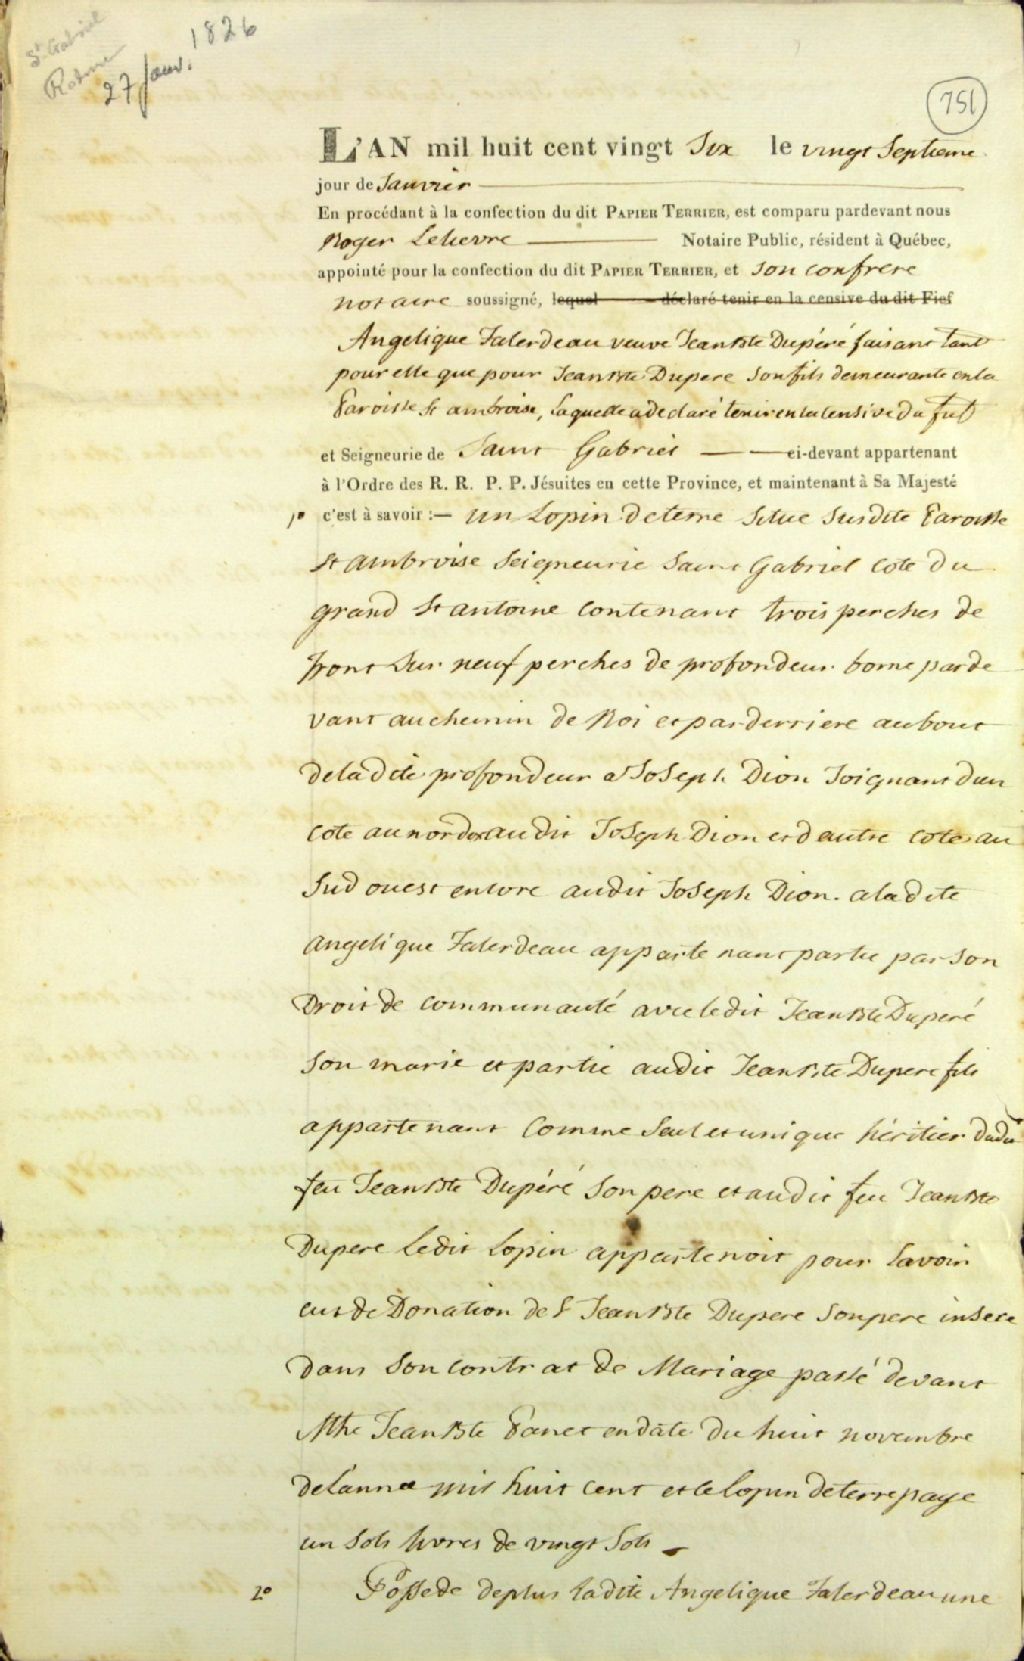 St Gabriel
27 Janv. 1826
751
L'AN mil huit cent vingt Six le vingt Septieme
jour de Janvier
En procédant à la confection du dit PAPIER TERRIER, est comparu pardevant nous
Roger Lelievre Notaire Public, résident à Québec,
appointé pour la confection du dit PAPIER TERRIER, et son confrere
notaire soussigné, lequel déclaré tenir en la censive du dit Fief
Angelique Falerdeau veuve Jean Bte Dupéré faisant tant
pour elle que pour Jean Bte Dupere son fils demeurante en la
Paroisse St ambroise, Laquelle a declaré tenir en la Censive du fief
et Seigneurie de Saint Gabriel ci-devant appartenant
à l'Ordre des R. R. P. P. Jésuites en cette Province, et maintenant à Sa Majesté
1º c'est à savoir :— un Lopin de terre Situé Susdite Paroisse
St Ambroise Seigneurie Saint Gabriel cote du
grand St antoine Contenant trois perches de
front Sur neuf perches de profondeur borné par de
vant au chemin de Roi et par derriere au bout
de la dite profondeur a Joseph Dion Joignant d'un
cote au nord est au dit Joseph Dion et d'autre coté au
Sud ouest encore audit Joseph Dion. a la dite
Angelique Falerdeau appartenant partie par Son
Droit de communauté avec le dit Jean Bte Dupéré
Son marie et partie audit Jean Bte Dupere fils
appartenant Comme Seul et unique héritier dudit
feu Jean Bte Dupéré Son pere et audit feu Jean Bte
Dupere Ledit Lopin appartenoit pour Lavoir
eut de Donation de S. Jean Bte Dupere Son pere inseré
dans Son Contrat de Mariage passé devant
Mtre Jean Bte Panet en date du huit novembre
de l'année mil huit cent et le lopin de terre paye
un Sols livres de vingt Sols
2º Possede de plus Ladite Angelique Falerdeau une